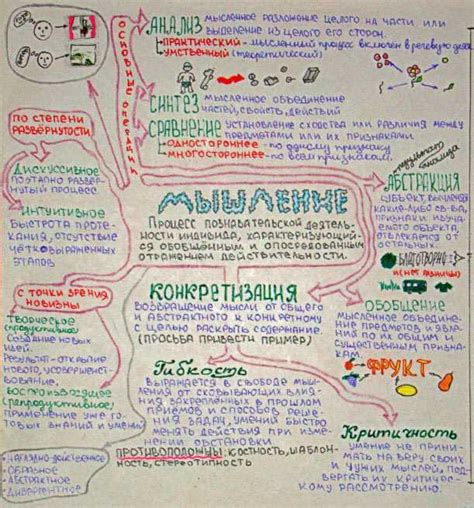 АНАЛИЗ мысленное разложение целого на части или
выделение из целого его сторон.
ПРАКТИЧЕСКИЙ - мысленный процесс включен в речевую деят
УМСТВЕННЫЙ (теоретический)
ОСНОВНЫЕ ОПЕРАЦИИ
СИНТЕЗ мысленное объединение
частей, свойств, действий
СРАВНЕНИЕ установление сходства или различия между
предметами или их признаками.
одностороннее - по одному признаку
многостороннее - по всем признакам.
по степени
развёрнутости
ДИСКУССИВНОЕ
поэтапно развер-
нутый процесс
ИНТУИТИВНОЕ
быстрота проте-
кания, отсутствие
чётко выраженных
этапов
МЫШЛЕНИЕ
Процесс познавательской деятель-
ности индивида, характеризующий-
ся обобщённым и опосредованным
отражением действительности.
АБСТРАКЦИЯ
субъект, вычленяя
какие-либо св-ва,
признаки изуча-
емого объекта,
отвлекается от
остальных.
БЛАГОТВОРНО
с точки зрения
новизны
ТВОРЧЕСКОЕ
(продуктивное)
создание новых
идей.
Результат - открытие
нового, усовершенст-
вование.
ВОСПРОИЗВОДЯЩЕЕ
(репродуктивное)
применение уже го-
товых знаний и умений
КОНКРЕТИЗАЦИЯ
возвращение мысли от общего
и абстрактного к конкретному
с целью раскрыть содержание.
(просьба привести пример)
ОБОБЩЕНИЕ
мысленное объедине-
ние предметов и явле-
ний по их общим и
существенным призна-
кам.
ФРУКТ
Гибкость
выражается в свободе мышле-
ния от сковывающих влия-
ния закрепленных в прошлом
приёмов и способов реше-
ния задач, умений быстро
менять действия при изме-
нении обстановки
ПРОТИВОПОЛОЖНЫ: косность, шаблон-
ность, стереотипность
Критичность
умение не прини-
мать на веру своих
и чужих мыслей, под-
вергать их критичес-
кому рассмотрению.
НАГЛЯДНО-ДЕЙСТВЕННОЕ
ОБРАЗНОЕ
АБСТРАКТНОЕ
ДИВЕРГЕНТНОЕ